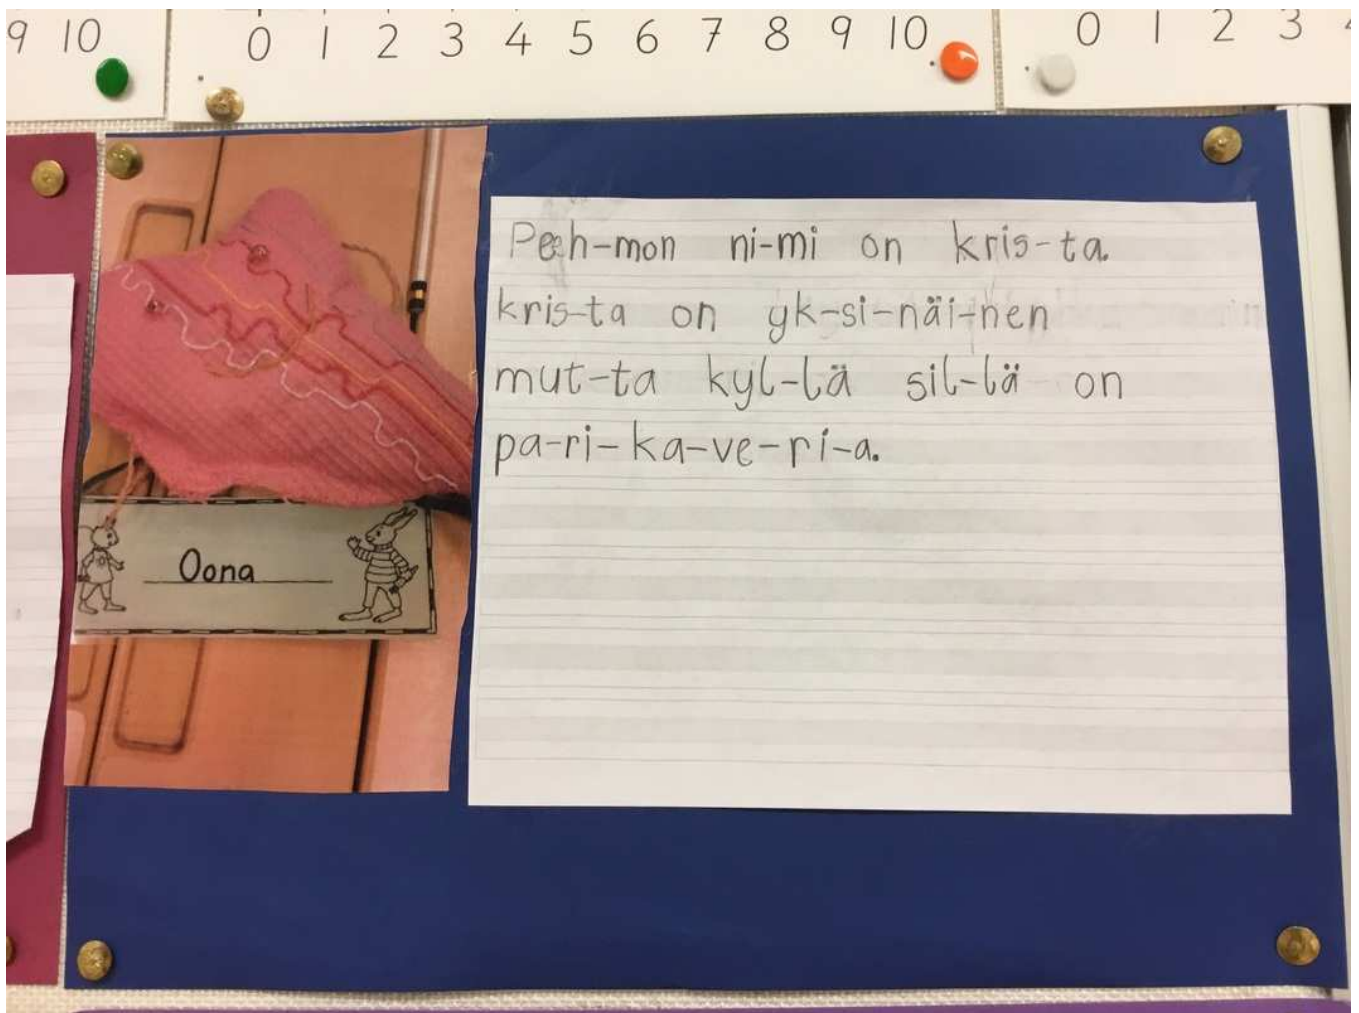 9 10
0 1 2 3 4 5 6 7 8 9 10
0 1 2 3
Peh-mon ni-mi on kris-ta.
kris-ta on yk-si-näi-nen
mut-ta kyl-lä sil-lä on
pa-ri-ka-ve-ri-a.
Oona